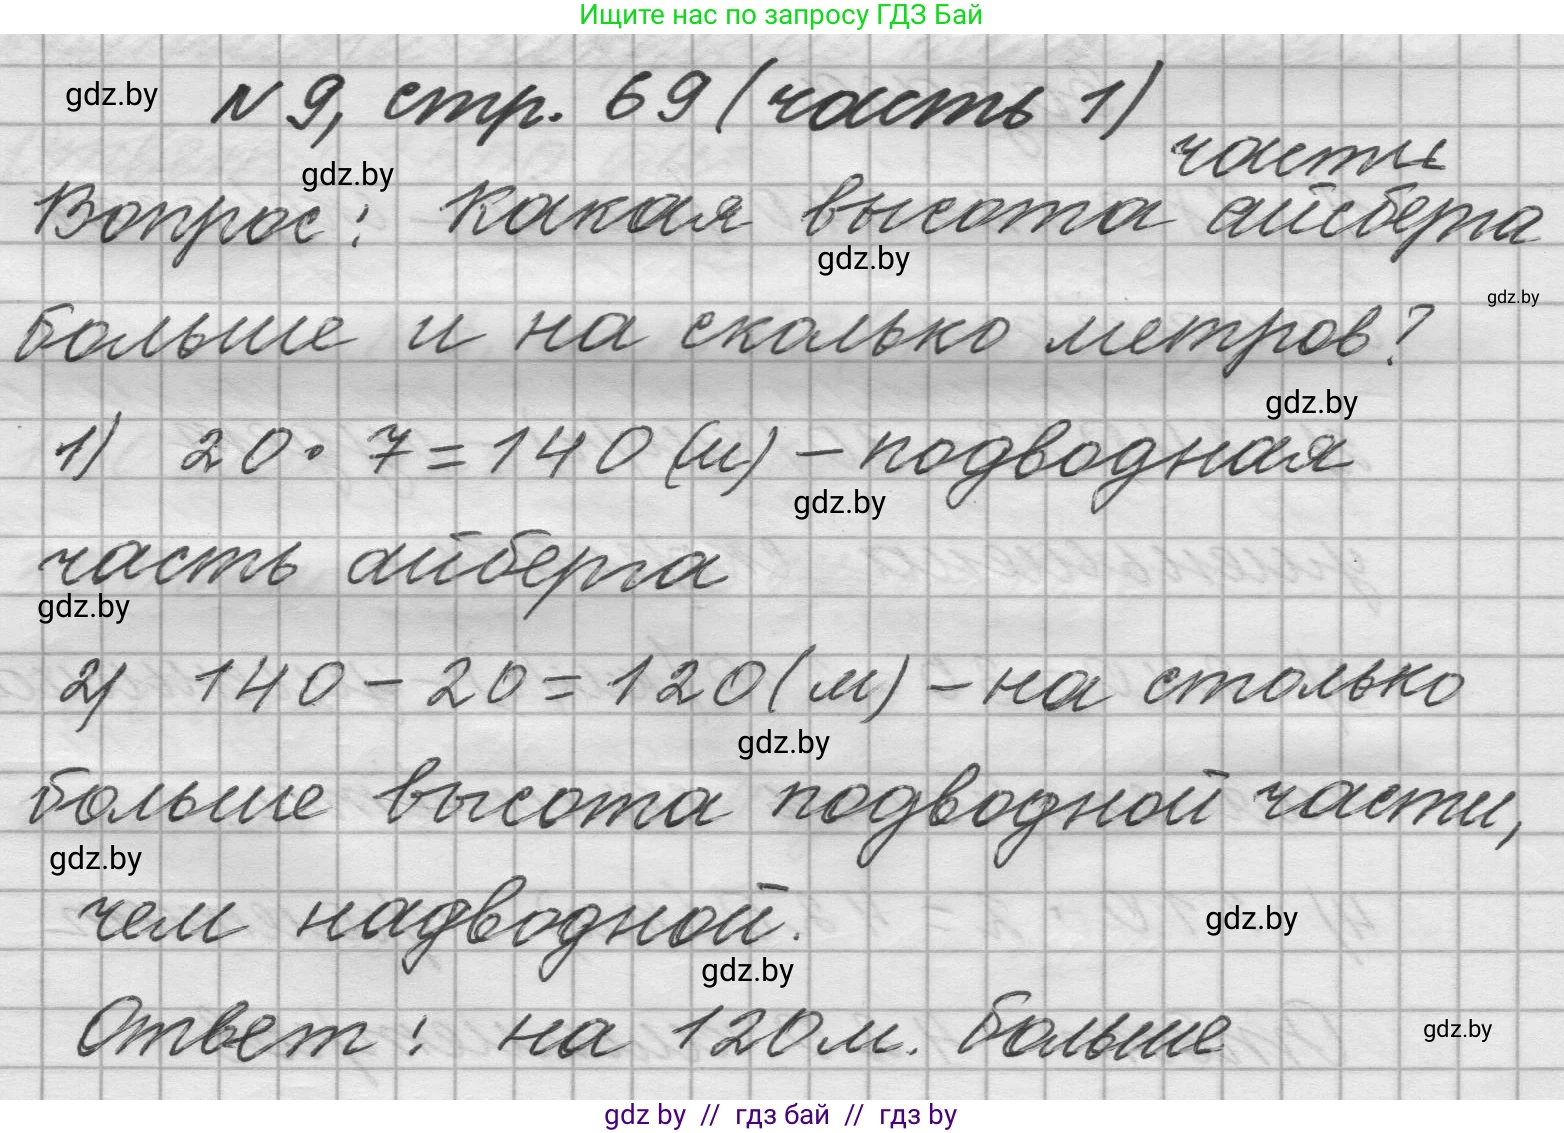 Ищите нас по запросу ГДЗ Бай
gdz.by
N 9, стр. 69 (часть 1)
части
gdz.by
Вопрос: Какая высота айсберга
gdz.by
gdz.by
больше и на сколько метров?
gdz.by
1) 20 · 7 = 140 (м) – подводная
gdz.by
часть айберга
gdz.by
2) 140 – 20 = 120 (м) – на столько
gdz.by
больше высота подводной части,
gdz.by
чем надводной.
gdz.by
gdz.by
Ответ: на 120 м. больше
gdz.by
gdz by // гдз бай // гдз by